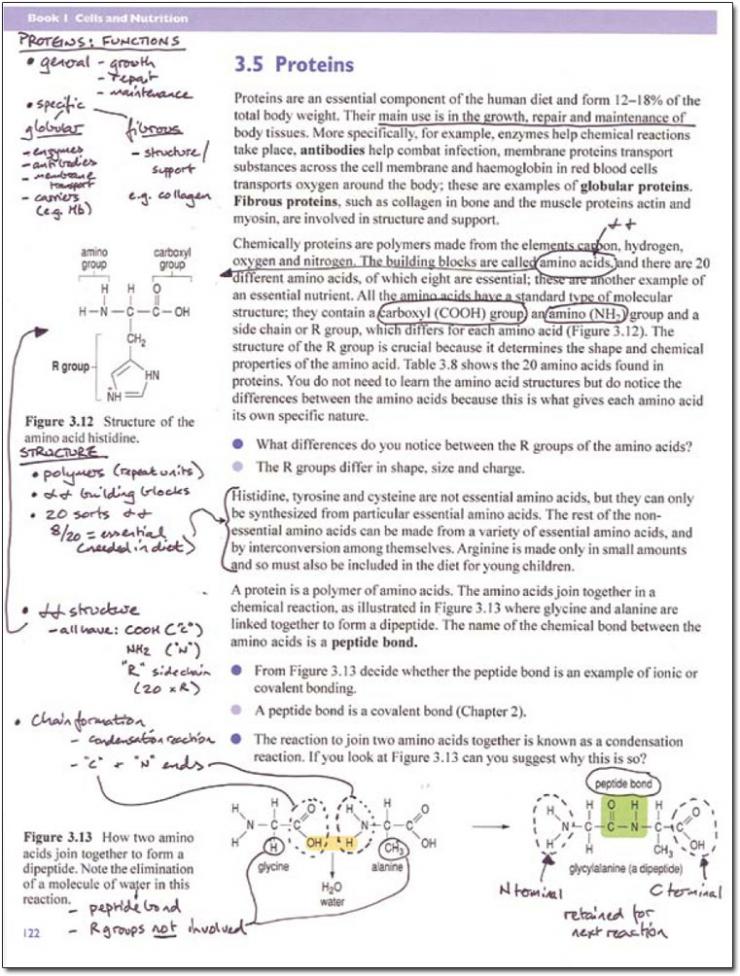 Book 1 Cells and Nutrition
PROTEINS: FUNCTIONS
• general - growth
- repair
- maintenance
• specific
globular
- enzymes
- antibodies
- membrane
transport
- carriers
(e.g. Hb)
fibrous
- structure/
support
e.g. collagen
3.5 Proteins
Proteins are an essential component of the human diet and form 12–18% of the
total body weight. Their main use is in the growth, repair and maintenance of
body tissues. More specifically, for example, enzymes help chemical reactions
take place, antibodies help combat infection, membrane proteins transport
substances across the cell membrane and haemoglobin in red blood cells
transports oxygen around the body; these are examples of globular proteins.
Fibrous proteins, such as collagen in bone and the muscle proteins actin and
myosin, are involved in structure and support.
Chemically proteins are polymers made from the elements carbon, hydrogen,
oxygen and nitrogen. The building blocks are called amino acids, and there are 20
different amino acids, of which eight are essential; these are another example of
an essential nutrient. All the amino acids have a standard type of molecular
structure; they contain a carboxyl (COOH) group, an amino (NH2) group and a
side chain or R group, which differs for each amino acid (Figure 3.12). The
structure of the R group is crucial because it determines the shape and chemical
properties of the amino acid. Table 3.8 shows the 20 amino acids found in
proteins. You do not need to learn the amino acid structures but do notice the
differences between the amino acids because this is what gives each amino acid
its own specific nature.
amino group
carboxyl group
H H O
H–N–C–C–OH
CH2
R group
HN
NH
Figure 3.12 Structure of the
amino acid histidine.
• What differences do you notice between the R groups of the amino acids?
• The R groups differ in shape, size and charge.
STRUCTURE
• polymers (repeat units)
• building blocks
• 20 sorts
8/20 = essential
(needed in diet)
Histidine, tyrosine and cysteine are not essential amino acids, but they can only
be synthesized from particular essential amino acids. The rest of the non-
essential amino acids can be made from a variety of essential amino acids, and
by interconversion among themselves. Arginine is made only in small amounts
and so must also be included in the diet for young children.
A protein is a polymer of amino acids. The amino acids join together in a
chemical reaction, as illustrated in Figure 3.13 where glycine and alanine are
linked together to form a dipeptide. The name of the chemical bond between the
amino acids is a peptide bond.
• structure
- all have: COOH ("C")
NH2 ("N")
"R" sidechain
(20 x R)
• From Figure 3.13 decide whether the peptide bond is an example of ionic or
covalent bonding.
• A peptide bond is a covalent bond (Chapter 2).
• The reaction to join two amino acids together is known as a condensation
reaction. If you look at Figure 3.13 can you suggest why this is so?
• Chain formation
- condensation reaction
- "C" + "N" ends
peptide bond
H H O H H O
N–C–C N–C–C
H H OH H CH3 OH
glycine
alanine
H2O
water
H H O H H O
N–C–C–N–C–C
H H CH3 OH
glycylalanine (a dipeptide)
N terminal
C terminal
retained for
next reaction
Figure 3.13 How two amino
acids join together to form a
dipeptide. Note the elimination
of a molecule of water in this
reaction.
- peptide bond
- R groups not involved
122